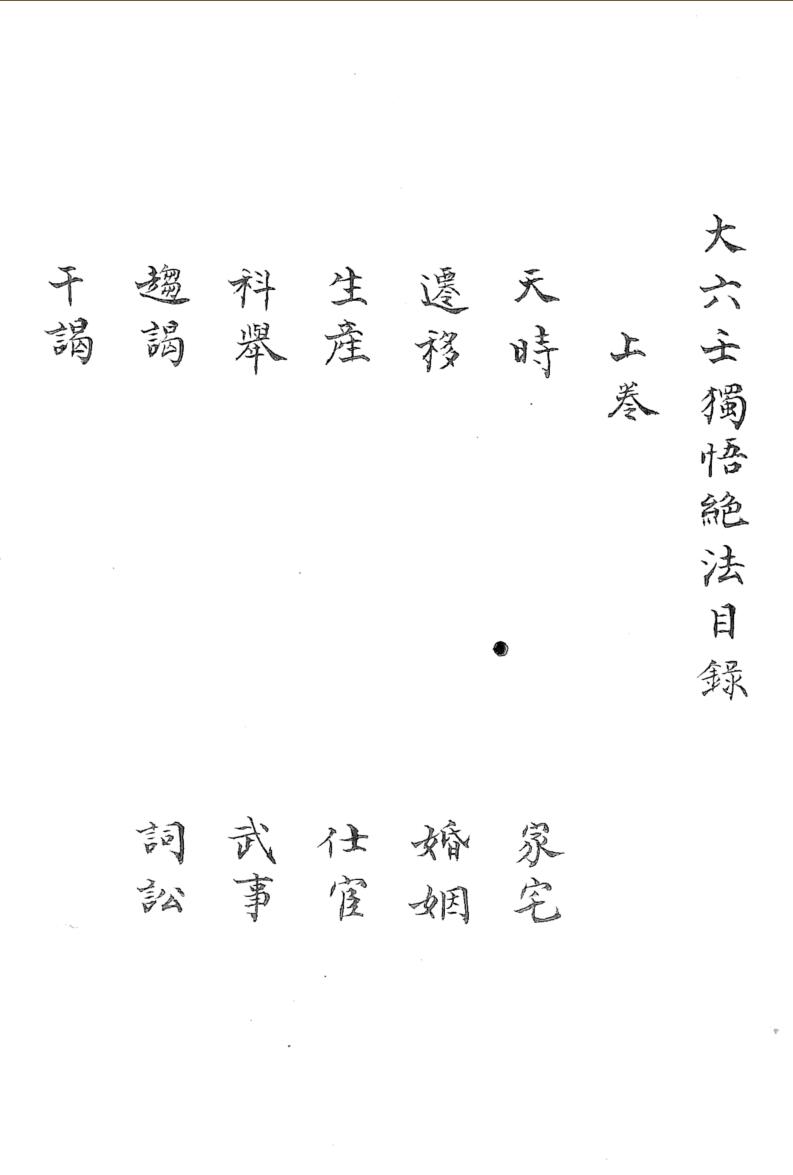 大六壬獨悟絕法目錄
上卷
天時　家宅
遷移　婚姻
生產　仕宦
科舉　武事
趨謁　詞訟
干謁